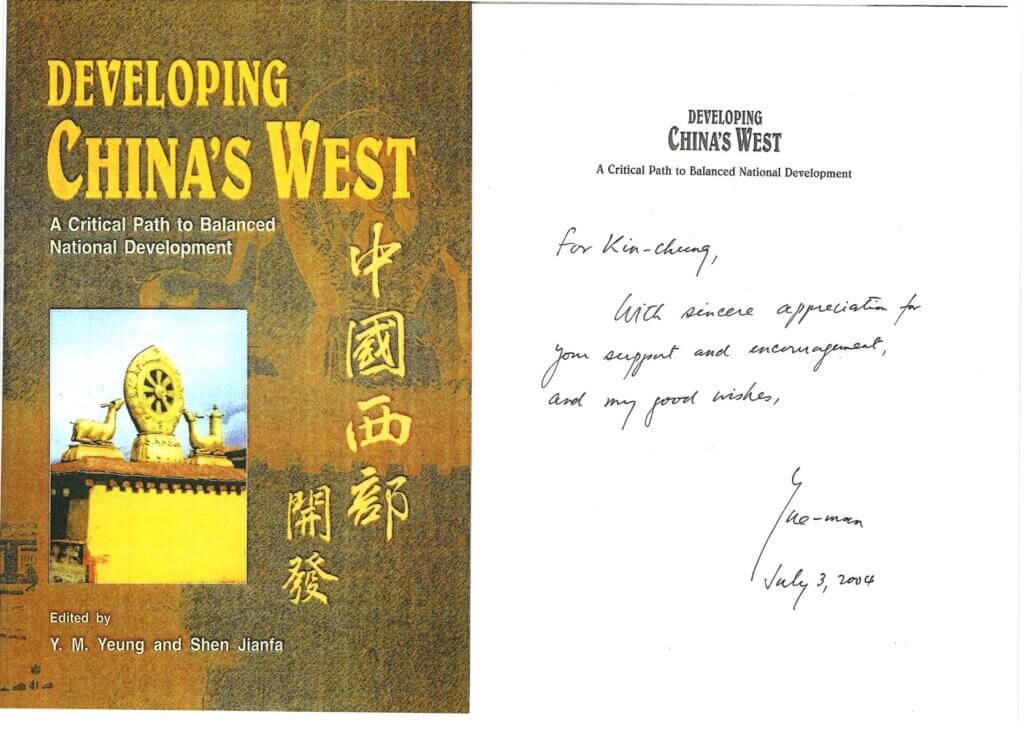 DEVELOPING
CHINA'S WEST
A Critical Path to Balanced
National Development
中國西部
開發
Edited by
Y. M. Yeung and Shen Jianfa
DEVELOPING
CHINA'S WEST
A Critical Path to Balanced National Development
For Kin-cheung,
With sincere appreciation for
your support and encouragement,
and my good wishes,
Yue-man
July 3, 2004